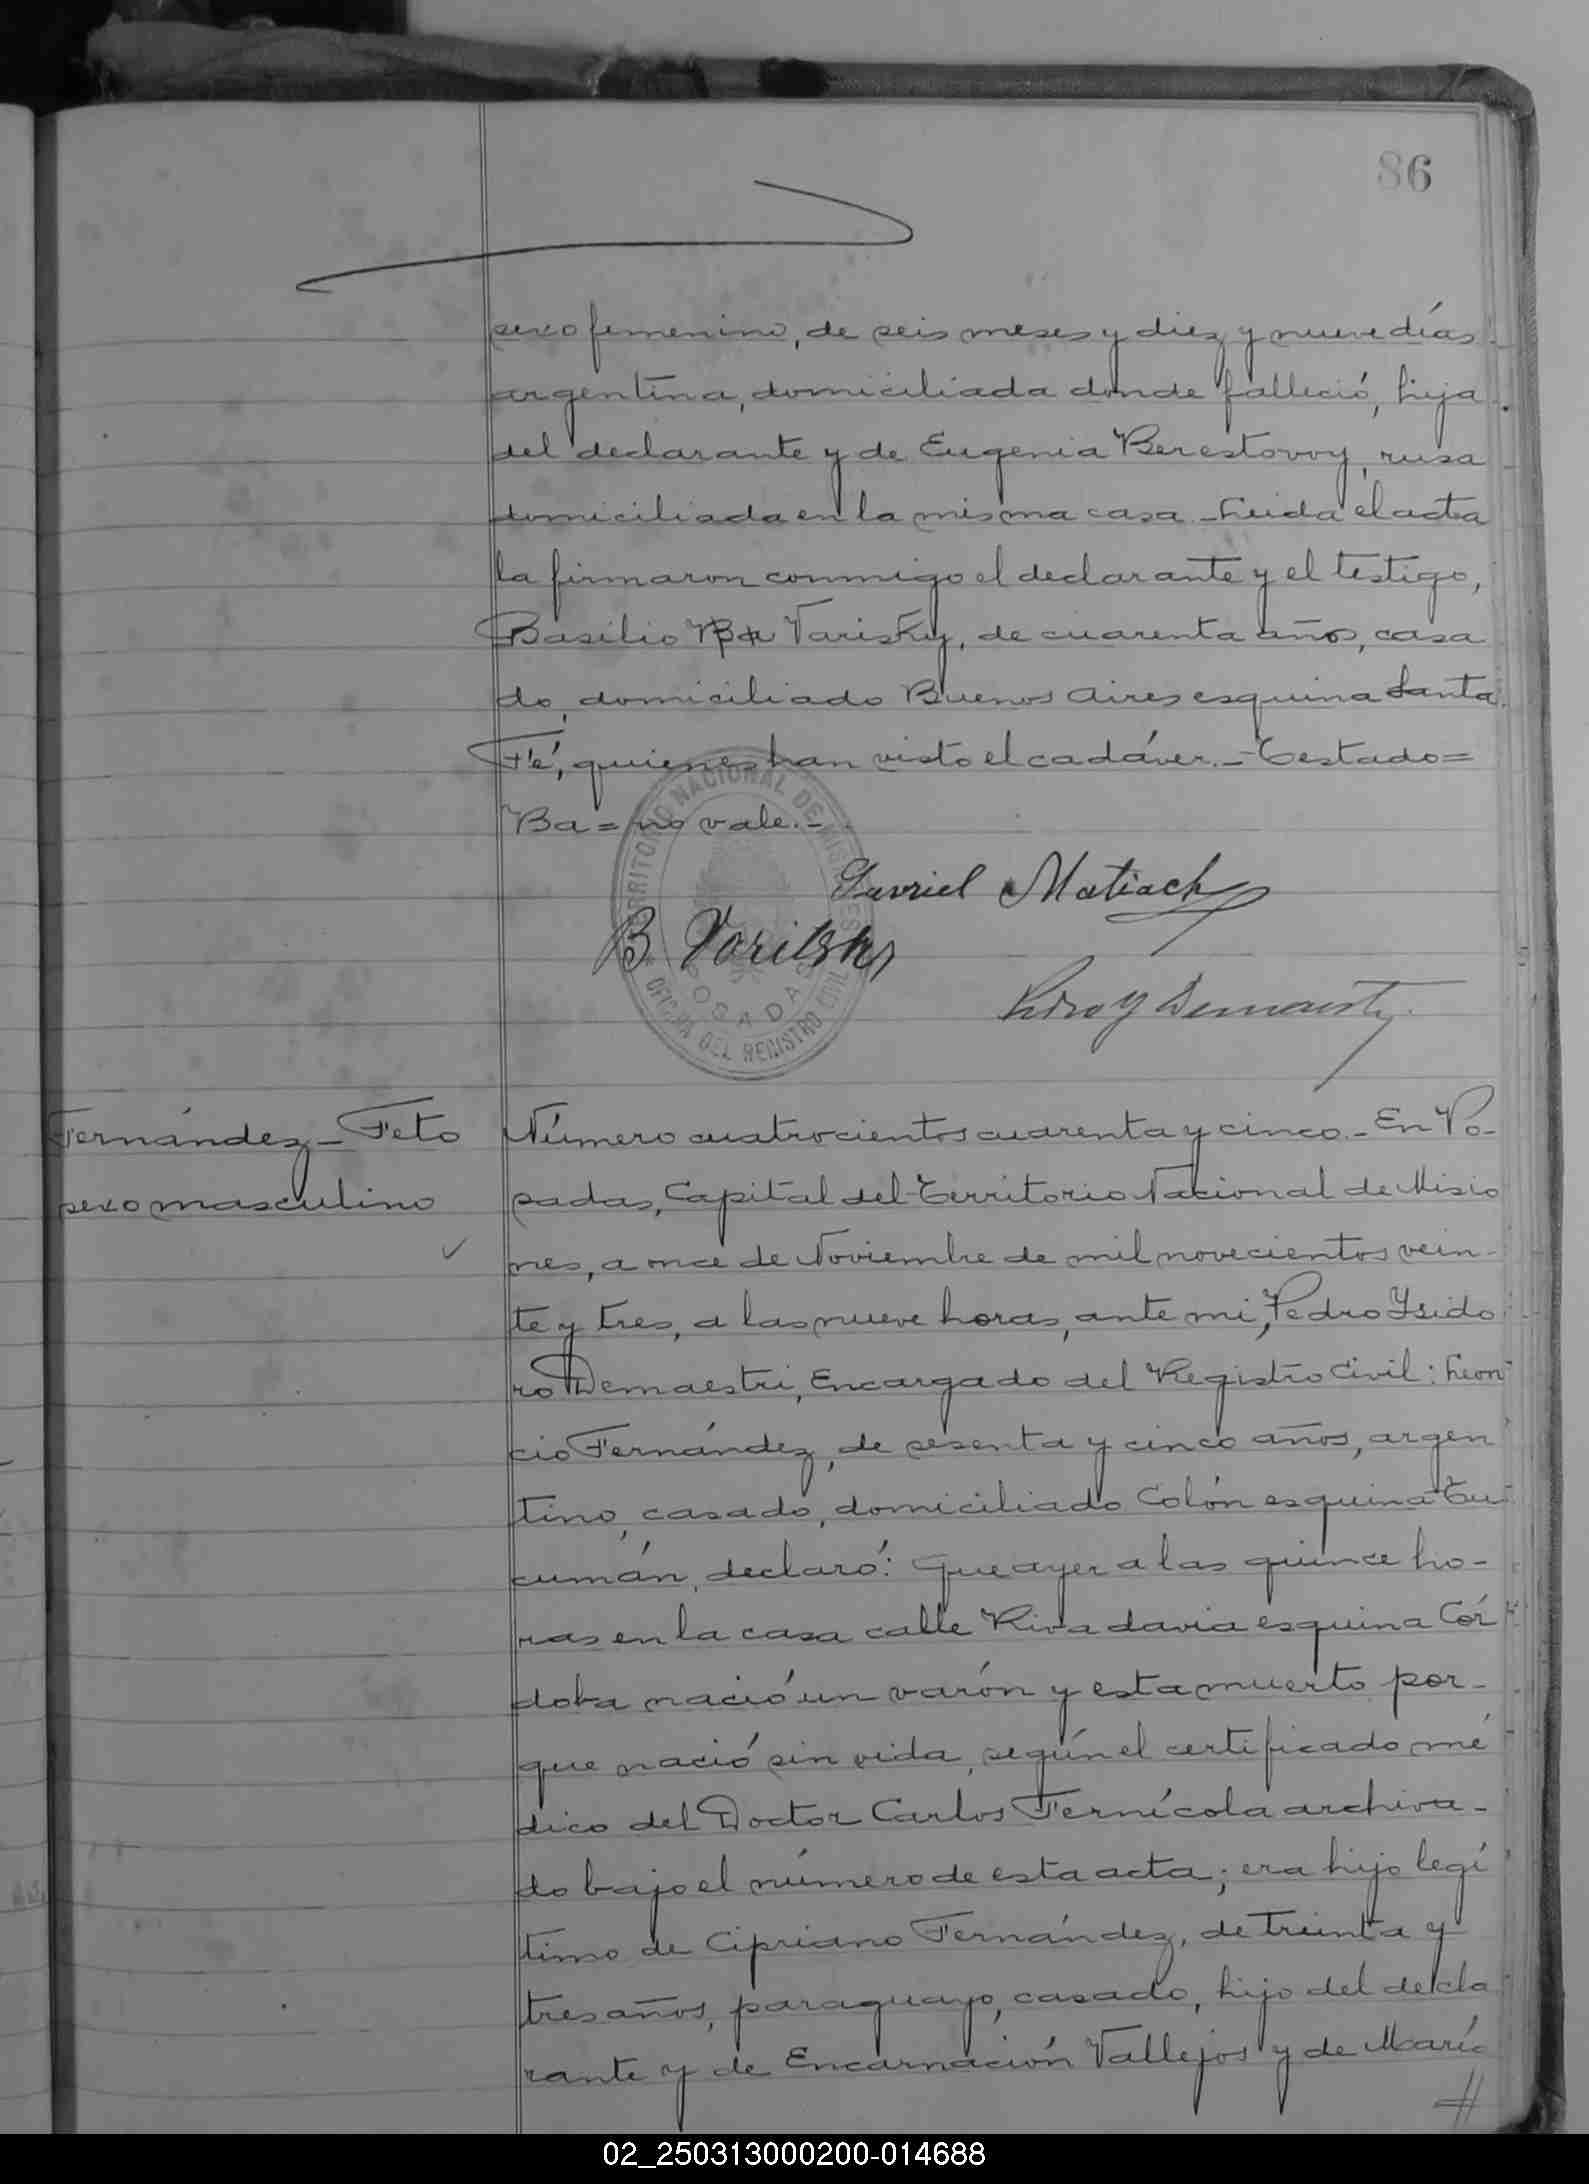 86
sexo femenino, de seis meses y diez y nueve días
argentina, domiciliada donde falleció, hija
del declarante y de Eugenia Berestovoy, rusa
domiciliada en la misma casa.- Leida el acta
la firmaron conmigo el declarante y el testigo,
Basilio Ba Varisky, de cuarenta años, casa
do, domiciliado Buenos Aires esquina Santa
Fé, quienes han visto el cadáver.- Testado=
Ba = no vale.-
TERRITORIO NACIONAL DE MISIONES
POSADAS
OFICINA DEL REGISTRO CIVIL
Gavriel Matiach
B Varitsky
Pedro Y Demaestri
Fernández - Feto
sexo masculino
Número cuatrocientos cuarenta y cinco.- En Po-
sadas, Capital del Territorio Nacional de Misio
nes, a once de Noviembre de mil novecientos vein-
te y tres, a las nueve horas, ante mi, Pedro Ysido
ro Demaestri, Encargado del Registro Civil: Leon
cio Fernández, de sesenta y cinco años, argen
tino, casado, domiciliado Colón esquina Tu
cumán, declaró: Que ayer a las quince ho-
ras en la casa calle Rivadavia esquina Cór
doba nació un varón y esta muerto por-
que nació sin vida, según el certificado mé
dico del Doctor Carlos Fernícola archiva-
do bajo el número de esta acta; era hijo legí
timo de Cipriano Fernández, de treinta y
tres años, paraguayo, casado, hijo del decla
rante y de Encarnación Vallejos y de María
02_250313000200-014688